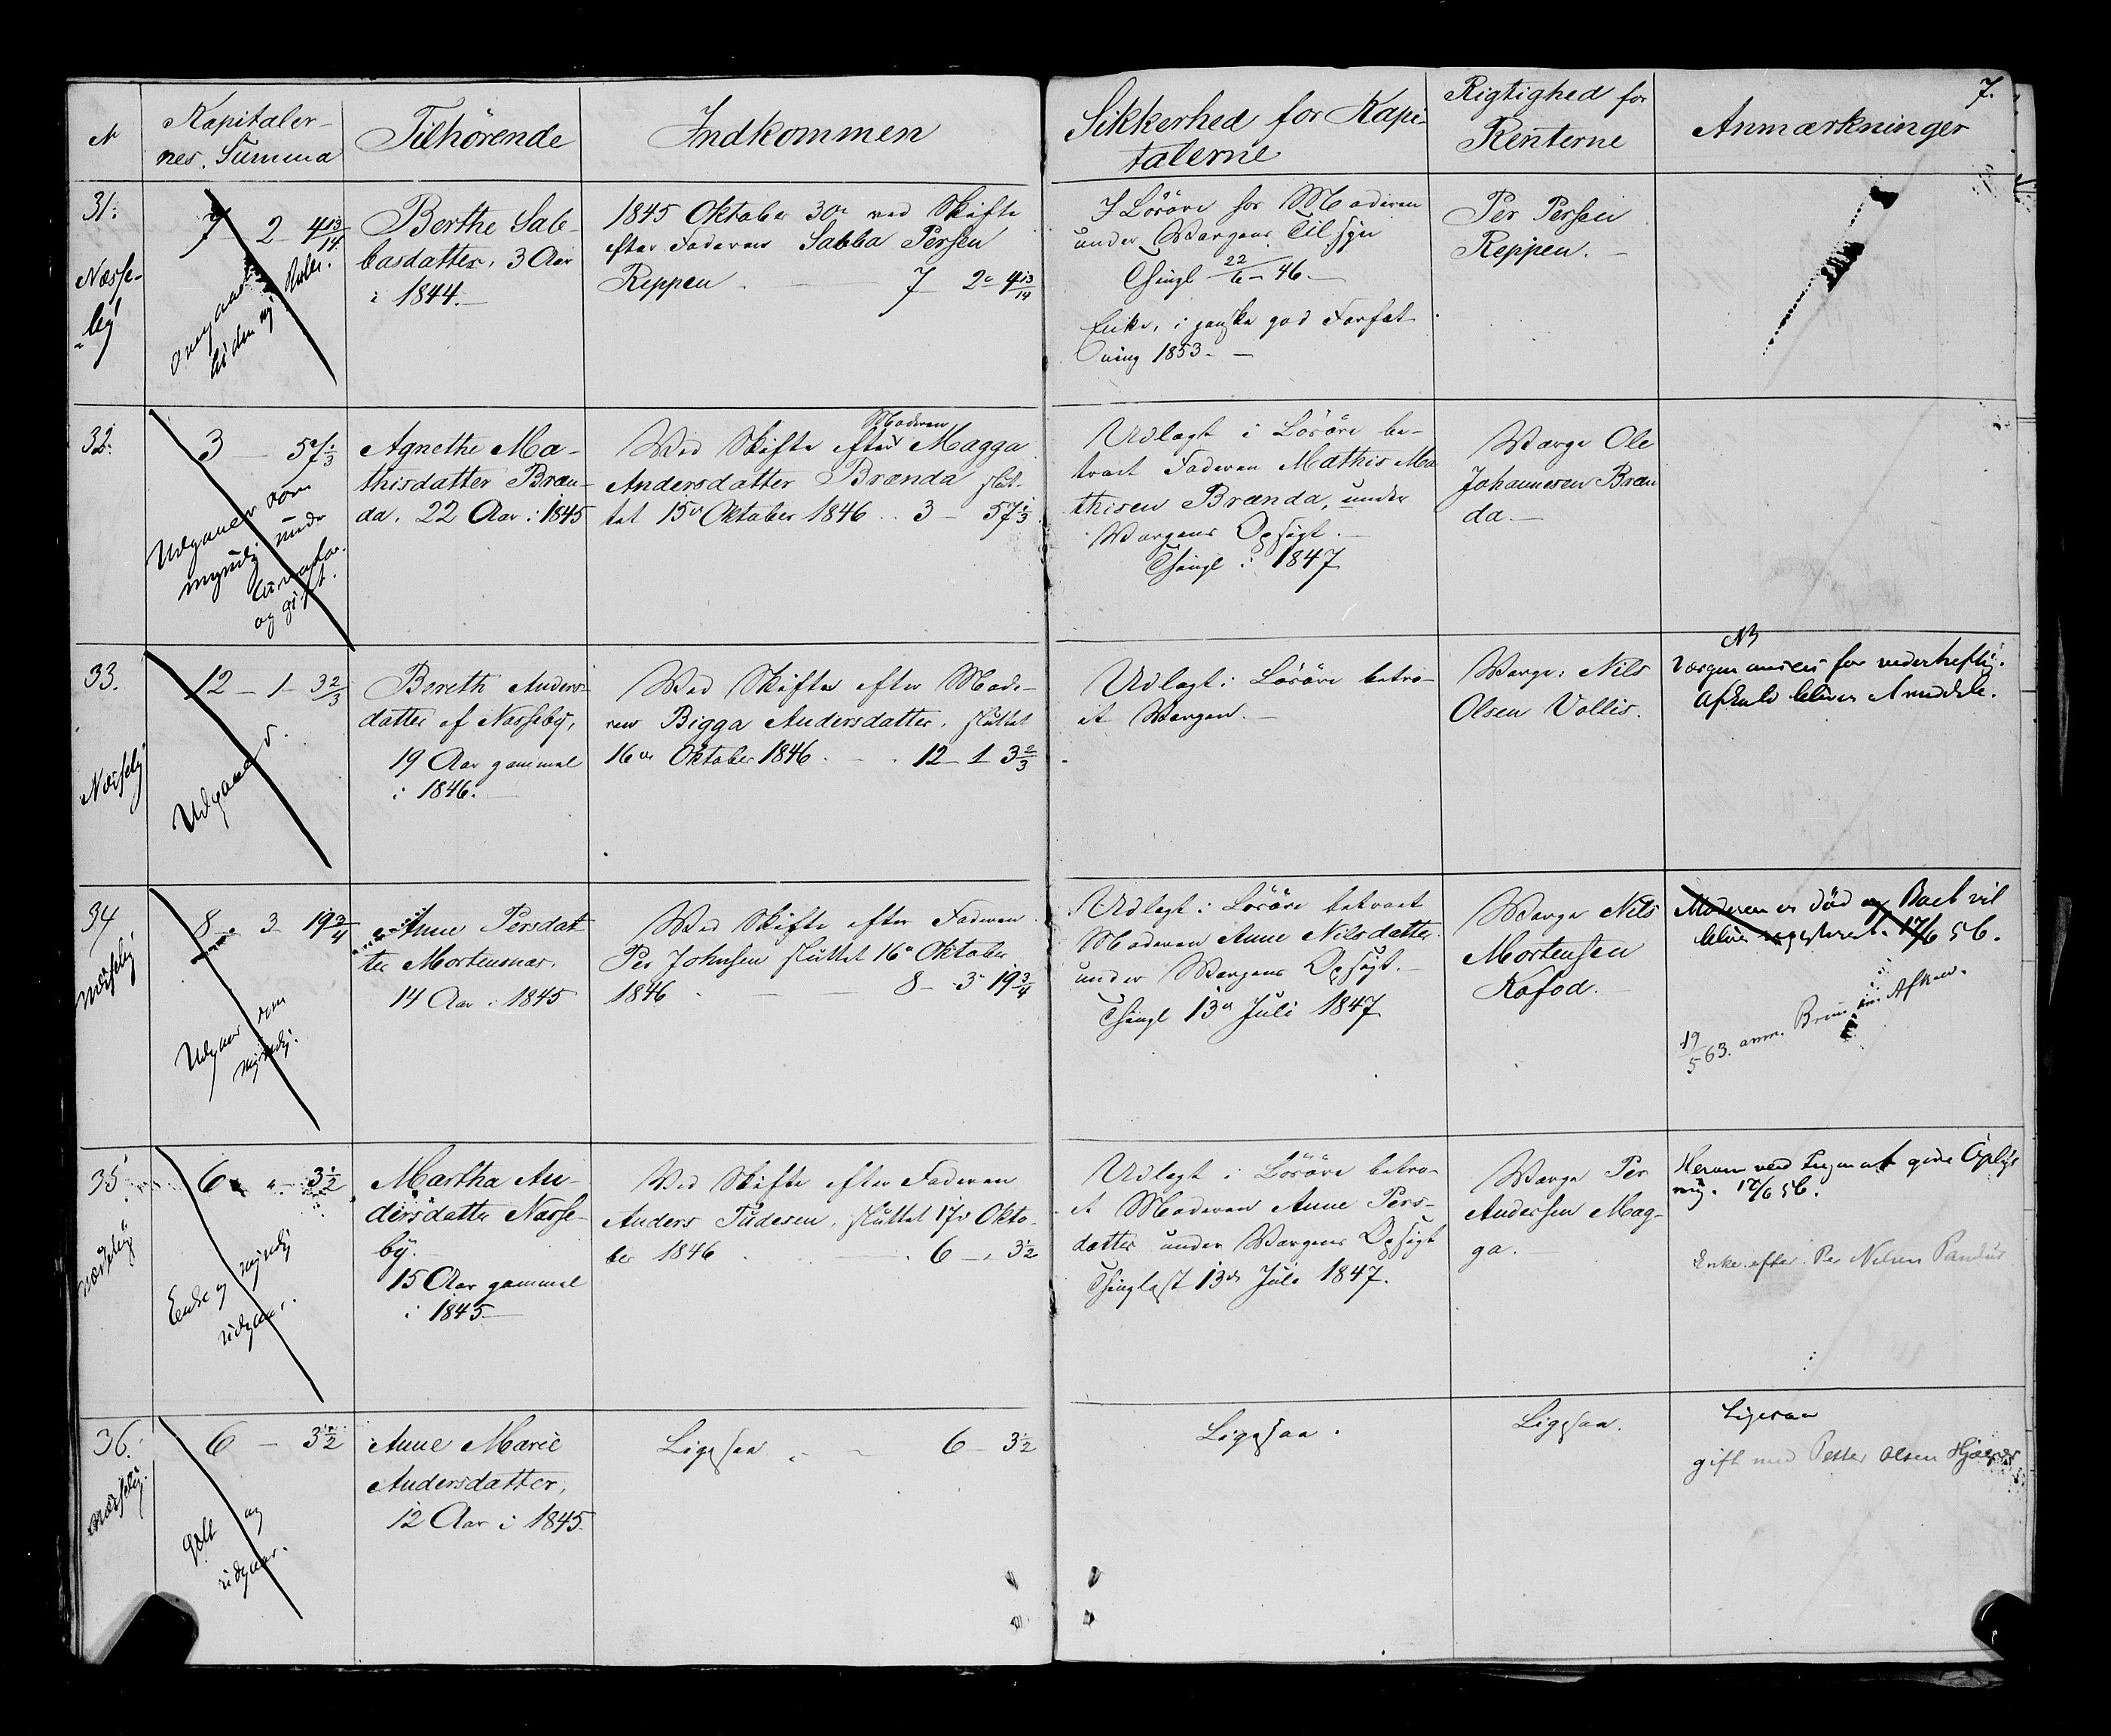 7.
N
Kapitaler-
nes Summa
Tilhörende
Indkommen
Sikkerhed for Kapi-
talerne
Rigtighed for
Renterne
Anmærkninger
31.
Næsse-
by
7 2 4 13/14
Berthe Sab-
basdatter, 3 Aar
i 1844.
1845 Oktober 30te ved Skifte
efter Faderen Sabba Persen
Reppen 7 2 4 13/14
I Løsøre hos Moderen
under Wærgens Tilsyn
Thingl 22/6 46.
Enke, i ganske god Forfat-
ning 1853.
Per Persen
Reppen.
32.
3 - 57 1/3
Udgaaer som
myndig under
Curator
og gift.
Agnethe Ma-
thisdatter Bræn-
da, 22 Aar i 1845
Moderen
Wed Skifte efter Magga
Andersdatter Brænda slut-
tet 15de Oktober 1846 3 - 57 1/3
Udlagt i Løsøre be-
troet Faderen Mathis Ma-
thisen Brænda, under
Wærgens Opsigt.
Thingl i 1847
Wærge Ole
Johannesen Bræn
da.
33.
Næsseby
12 - 1 - 3 2/3
Udgaaed.
Bereth Anders-
datter af Næsseby,
19 Aar gammel
i 1846.
Wed Skifte efter Mode-
ren Bigga Andersdatter, sluttet
16de Oktober 1846 12 - 1 3 2/3
Udlagt i Løsøre betro-
et Wærgen.
Wærge: Nils
Olsen Vollis.
NB
Værgen ansees for vederheftig.
34
Næsseby
8 3 19 3/4
Udgaar som
myndig.
Anne Persdat
ter Mortensnæs.
14 Aar i 1845
Wed Skifte efter Faderen
Per Johnsen sluttet 16de Oktober
1846 8 - 3 19 3/4
Udlagt i Løsøre betroet
Moderen Anne Nilsdatter
under Wærgens Opsigt.
Thingl 13de Juli 1847
Wærge Nils
Mortensen
Kofod.
Moderen er død og Boet vil
blive registreret. 17/6 56.
19/5 63. anm.
35
Næsseby
6 " - 3 1/2
Enke og myndig
udgaar.
Martha An-
dersdatter Næsse-
by.
15 Aar gammel
i 1845
Wed Skifte efter Faderen
Anders Tudesen, sluttet 17de Okto-
ber 1846 6 - " 3 1/2
Udlagt i Løsøre betro-
et Moderen Anne Pers-
datter under Wærgens Opsigt
Thinglæst 13de Juli 1847.
Wærge Per
Andersen Mag-
ga.
give Oplys
ning. 17/6 56.
Enke efter Per Nilsen
36.
Næsseby.
6 - 3 1/2
Gift og
udgaar.
Anne Marie
Andersdatter,
12 Aar i 1845
Ligesaa 6 - 3 1/2
Ligesaa.
Ligesaa.
Ligesaa
gift med Petter Olsen